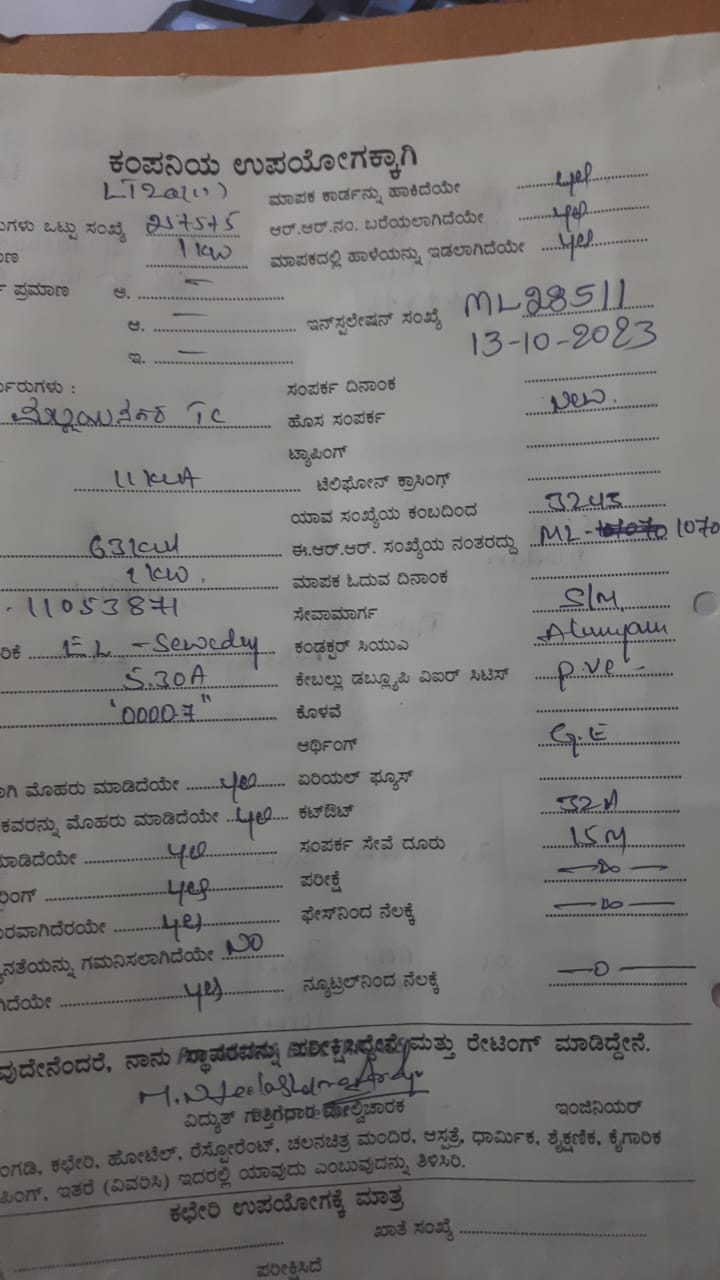 ಕಂಪನಿಯ ಉಪಯೋಗಕ್ಕಾಗಿ
LT2a(1) ಮಾಪಕ ಕಾರ್ಡನ್ನು ಹಾಕಿದೆಯೇ yes
ಗಳು ಒಟ್ಟು ಸಂಖ್ಯೆ 257575 ಆರ್.ಆರ್.ನಂ. ಬರೆಯಲಾಗಿದೆಯೇ yes
1 KW ಮಾಪಕದಲ್ಲಿ ಹಾಳೆಯನ್ನು ಇಡಲಾಗಿದೆಯೇ yes
ಪ್ರಮಾಣ ಅ. –
ಆ. – ಇನ್‌ಸ್ಪಲೇಷನ್ ಸಂಖ್ಯೆ ML28511
ಇ. – 13-10-2023
ರುಗಳು : ಸಂಪರ್ಕ ದಿನಾಂಕ
TC ಹೊಸ ಸಂಪರ್ಕ New.
ಟ್ಯಾಪಿಂಗ್
11 KVA ಟೆಲಿಫೋನ್ ಕ್ರಾಸಿಂಗ್
ಯಾವ ಸಂಖ್ಯೆಯ ಕಂಬದಿಂದ
ಈ.ಆರ್.ಆರ್. ಸಂಖ್ಯೆಯ ನಂತರದ್ದು ML- 1070
1 KW. ಮಾಪಕ ಓದುವ ದಿನಾಂಕ
11053871 ಸೇವಾಮಾರ್ಗ S/M
ರಿಕೆ ಕಂಡಕ್ಟರ್ ಸಿಯುಎ
5.30A ಕೇಬಲ್ಲು ಡಬ್ಲ್ಯೂಪಿ ವಿಐರ್ ಸಿಟಿಸ್ P.VC
"00007" ಕೊಳವೆ
ಆರ್ಥಿಂಗ್ G.E
ಗಿ ಮೊಹರು ಮಾಡಿದೆಯೇ yes ಏರಿಯಲ್ ಫ್ಯೂಸ್
ಕವರನ್ನು ಮೊಹರು ಮಾಡಿದೆಯೇ yes ಕಟ್‌ಔಟ್ 32A
ಮಾಡಿದೆಯೇ yes ಸಂಪರ್ಕ ಸೇವೆ ದೂರು 15M
ರಿಂಗ್ yes ಪರೀಕ್ಷೆ
ರವಾಗಿದೆರಯೇ yes ಫೇಸ್‌ನಿಂದ ನೆಲಕ್ಕೆ
ನತೆಯನ್ನು ಗಮನಿಸಲಾಗಿದೆಯೇ NO
ಗಿದೆಯೇ yes ನ್ಯೂಟ್ರಲ್‌ನಿಂದ ನೆಲಕ್ಕೆ
ವುದೇನೆಂದರೆ, ನಾನು ಸ್ಥಾವರವನ್ನು ಪರೀಕ್ಷಿಸಿದ್ದೇನೆ ಮತ್ತು ರೇಟಿಂಗ್ ಮಾಡಿದ್ದೇನೆ.
ವಿದ್ಯುತ್ ಗುತ್ತಿಗೆದಾರ ಮೇಲ್ವಿಚಾರಕ ಇಂಜಿನಿಯರ್
ಂಗಡಿ, ಕಛೇರಿ, ಹೋಟೆಲ್, ರೆಸ್ಟೋರೆಂಟ್, ಚಲನಚಿತ್ರ ಮಂದಿರ, ಆಸ್ಪತ್ರೆ, ಧಾರ್ಮಿಕ, ಶೈಕ್ಷಣಿಕ, ಕೈಗಾರಿಕ
ಪಿಂಗ್, ಇತರೆ (ವಿವರಿಸಿ) ಇದರಲ್ಲಿ ಯಾವುದು ಎಂಬುವುದನ್ನು ತಿಳಿಸಿರಿ.
ಕಛೇರಿ ಉಪಯೋಗಕ್ಕೆ ಮಾತ್ರ
ಖಾತೆ ಸಂಖ್ಯೆ
ಪರೀಕ್ಷಿಸಿದೆ